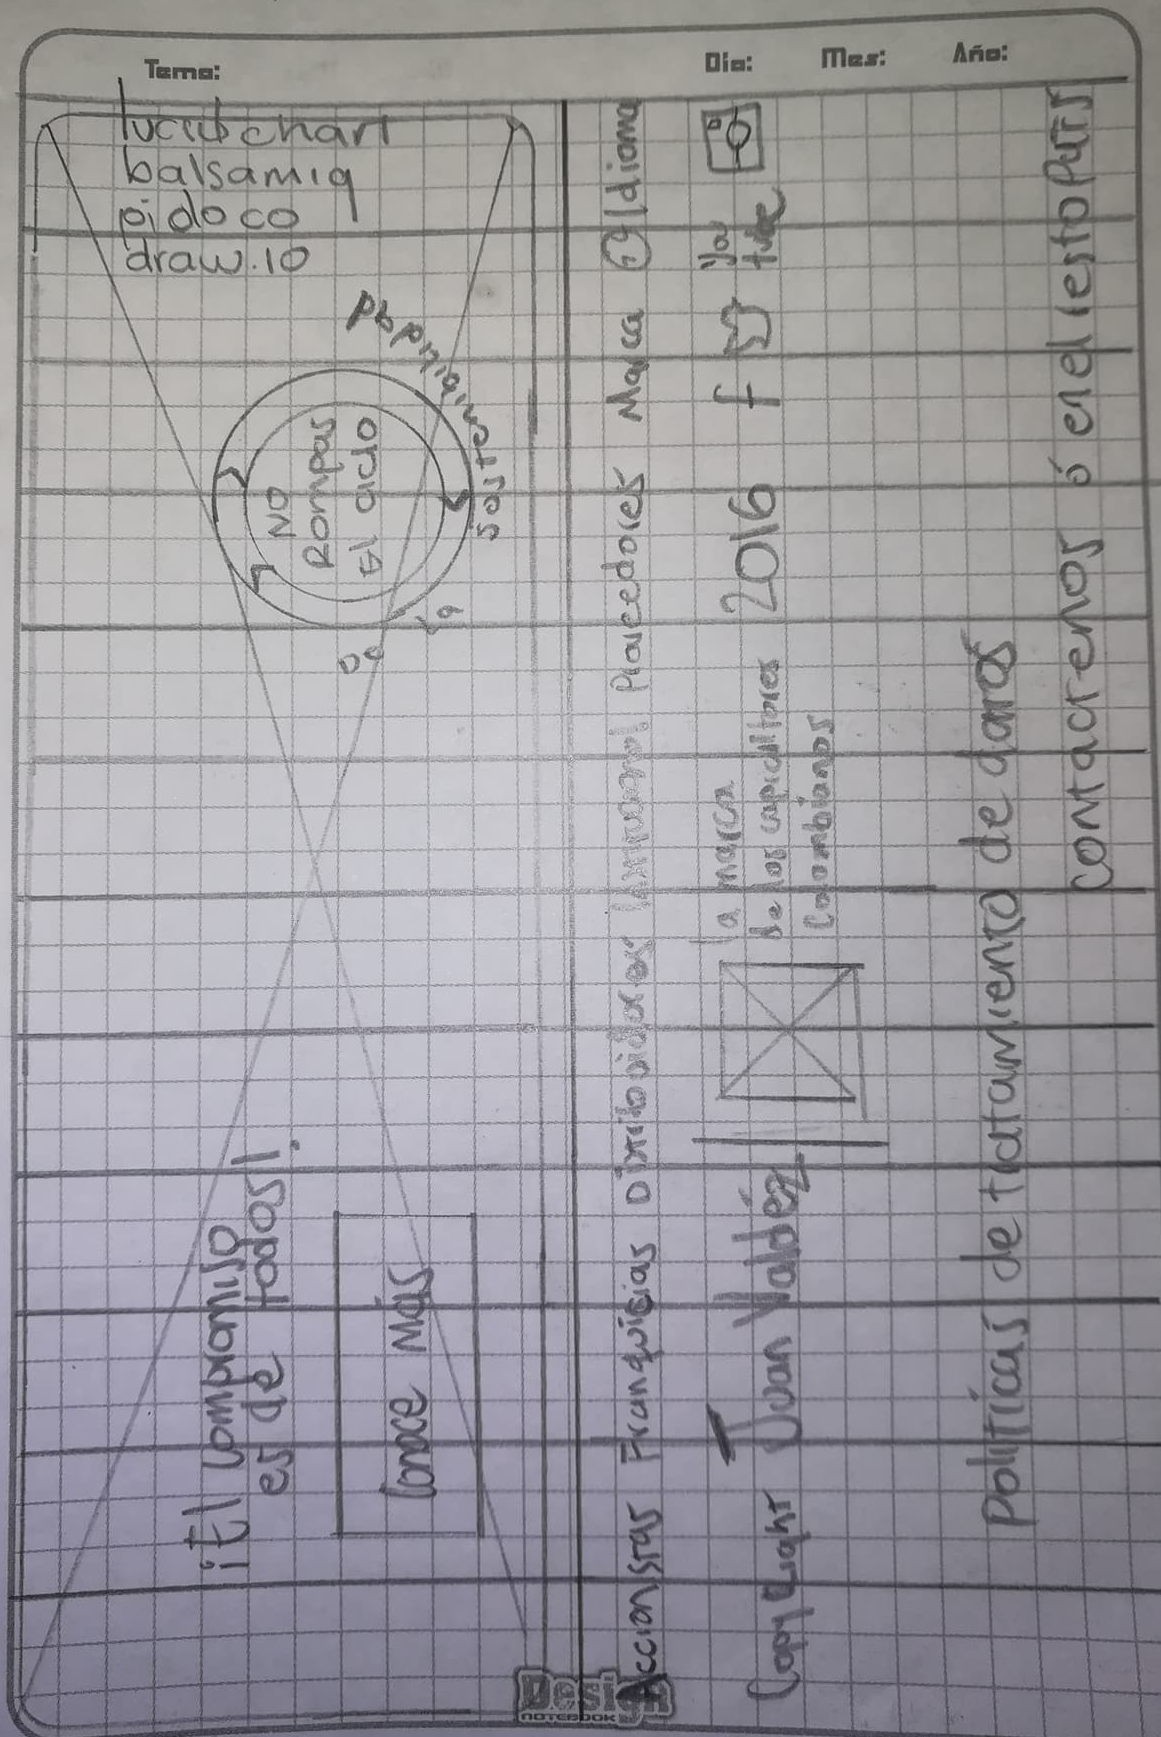 Tema:
Día: Mes: Año:
lucidchart
balsamiq
pidoco
draw.io
¡El compromiso
es de todos!
Conoce Más
NO
Rompas
El ciclo
De
la
sostenibilidad
Accionistas Franquicias Distribuidores Proveedores Marca Idioma
Copyright Juan Valdéz
la marca
de los
Colombianos
2016
f
You
tube
Políticas de tratamiento de daros
contacrenos ó en el
Design
NOTEBOOK